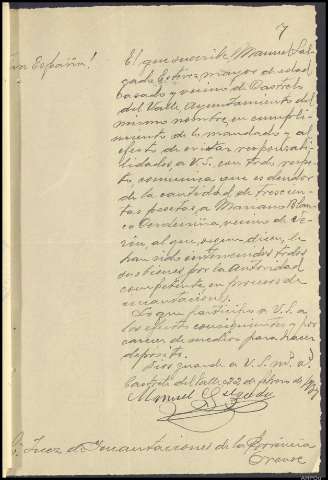 7
España!
El que suscribe Manuel Sal-
gado Esteve, mayor de edad
casado y vecino de Castrelo
del Valle Ayuntamiento del
mismo nombre, en cumpli-
miento de lo mandado y al
efecto de evitar responsabi-
lidades, a V.S. con todo respe-
to comunica que es deudor
de la cantidad de trescien-
tas pesetas, a Mariano Blan-
co vecino de Ve-
rín, al que, según dicen, le
han sido intervenidos todos
sus bienes por la autoridad
competente, en proceso de
incautación.
Lo que participa a V.S. a
los efectos consiguientes y por
carecer de medios para hacer
depósito.
Dios guarde a V.S. m.s a.s
Castrelo del Valle 22 de febrero de
Manuel Salgado
Sr. Juez de Incautaciones de la Provincia
Orense